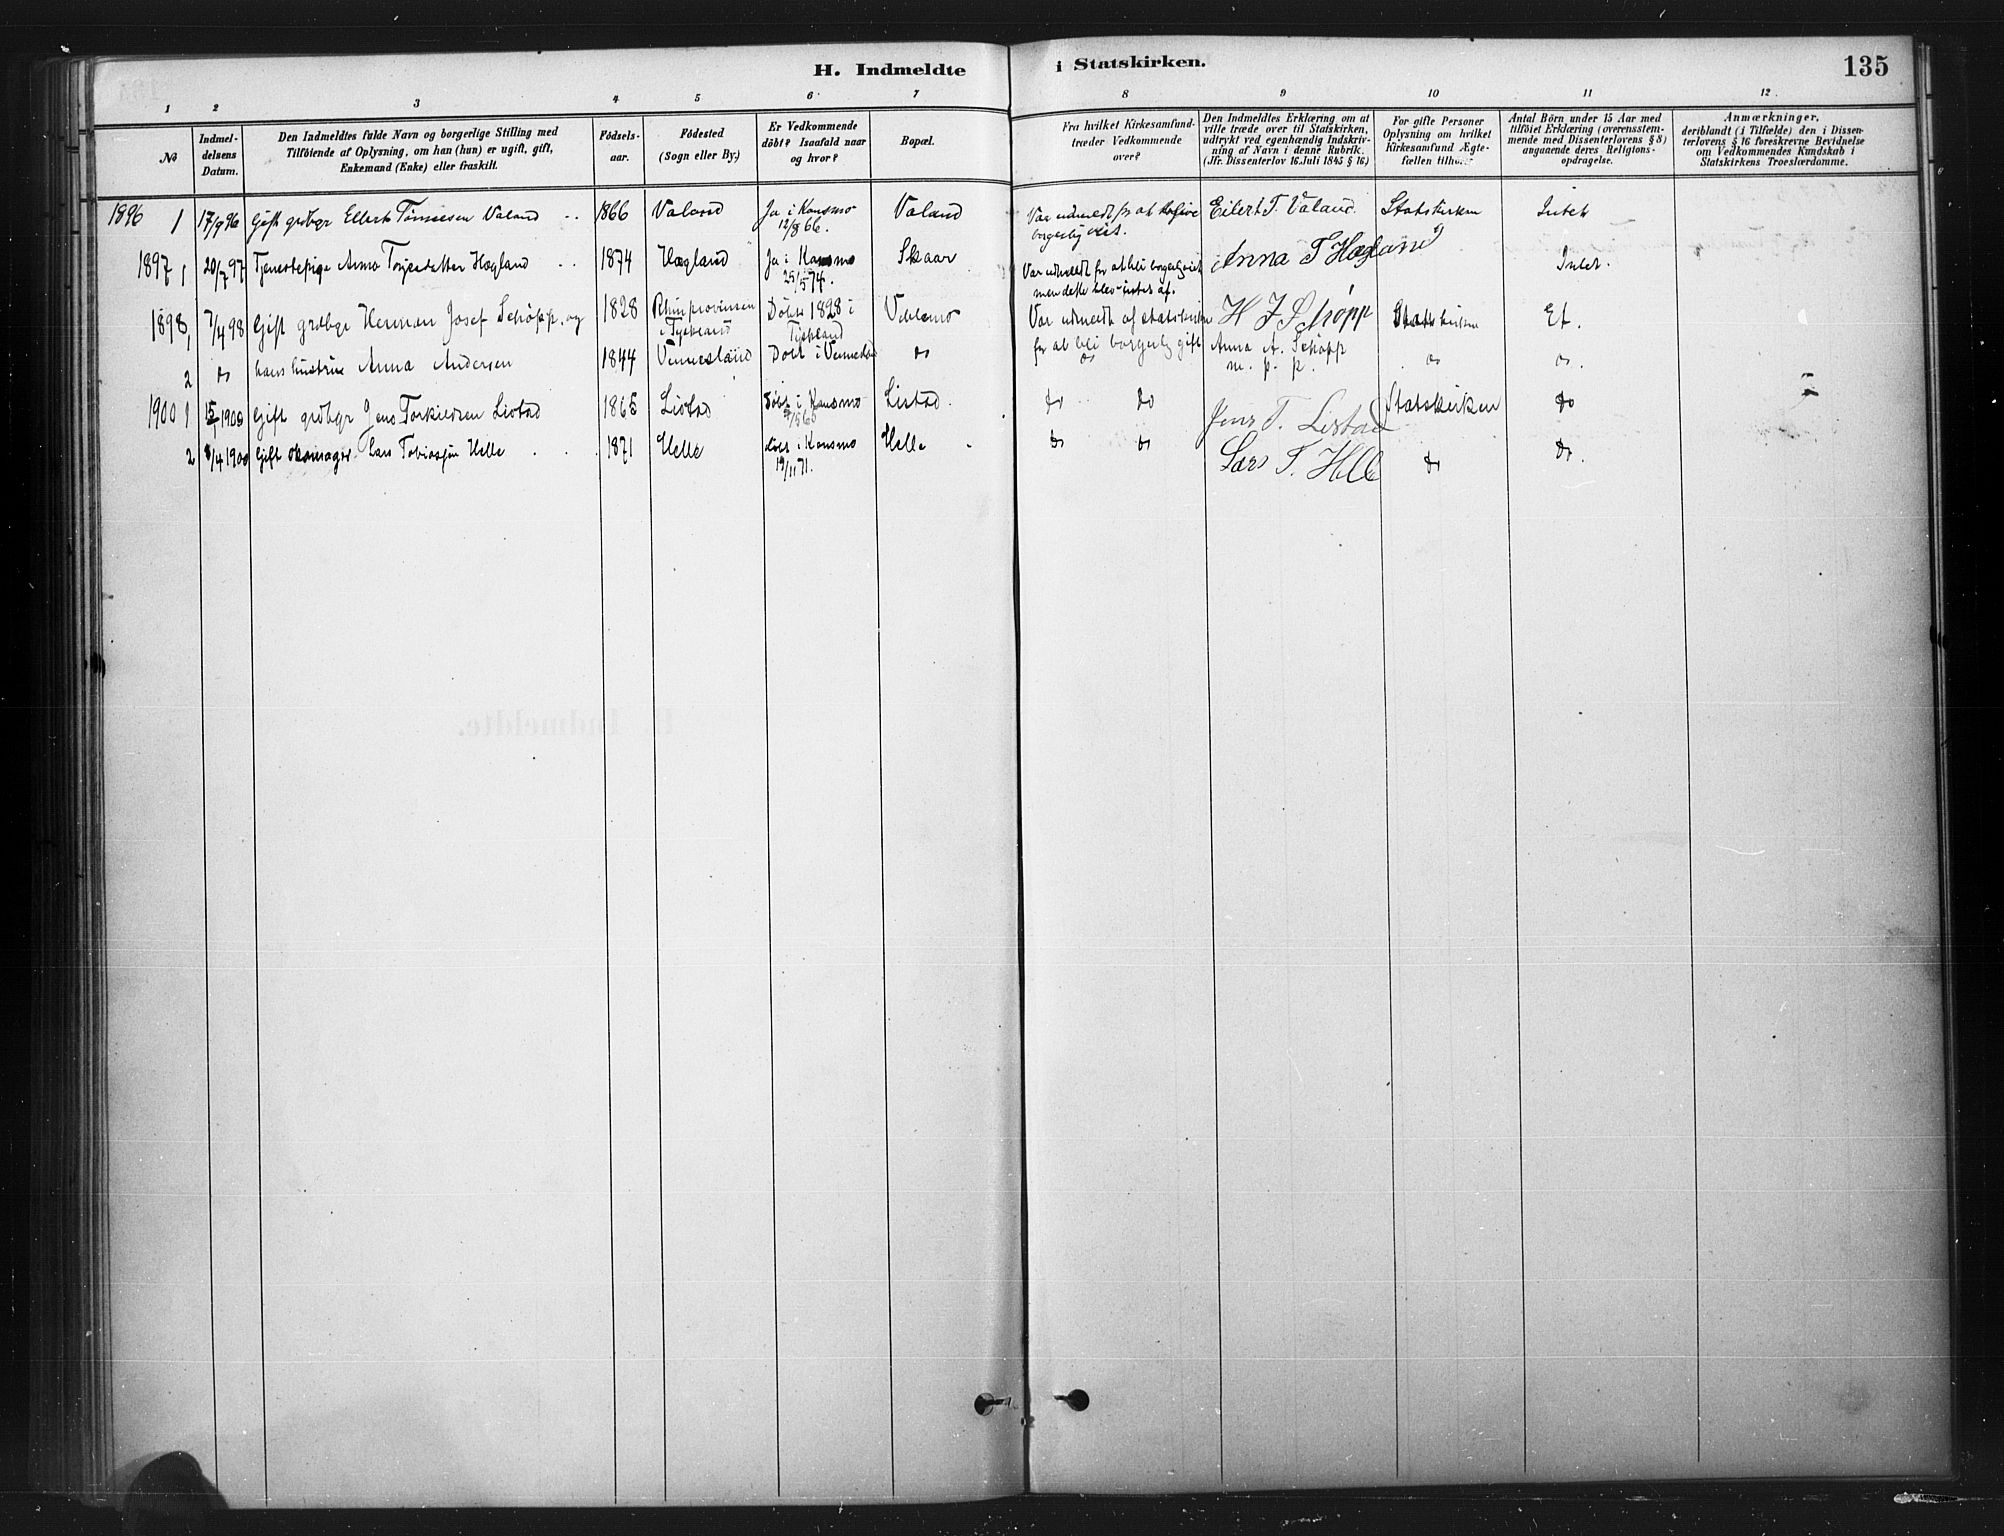 H. Indmeldte i Statskirken.
135
1 2 3 4 5 6 7 8 9 10 11 12
№
Indmel-
delsens
Datum.
Den Indmeldtes fulde Navn og borgerlige Stilling med
Tilföiende af Oplysning, om han (hun) er ugift, gift,
Enkemand (Enke) eller fraskilt.
Födsels-
aar.
Födested
(Sogn eller By.)
Er Vedkommende
döbt? Isaafald naar
og hvor?
Bopæl.
Fra hvilket Kirkesamfund
træder Vedkommende
over?
Den Indmeldtes Erklæring om at
ville træde over til Statskirken,
udtrykt ved egenhændig Indskriv-
ning af Navn i denne Rubrik.
(Jfr. Dissenterlov 16. Juli 1845 § 16)
For gifte Personer
Oplysning om hvilket
Kirkesamfund Ægte-
fællen tilhører
Antal Börn under 15 Aar med
tilföiet Erklæring (overensstem-
mende med Dissenterlovens § 8)
angaaende deres Religions-
opdragelse.
Anmærkninger,
deriblandt (i Tilfælde) den i Dissen-
terlovens § 16 foreskrevne Bevidnelse
om Vedkommendes Kundskab i
Statskirkens Troeslærdomme.
1896 1 17/9 96 Gift grdbgr Eilert Tønnesen Valand 1866 Valand Ja i Konsmo Valand Var udmeldt for at blive Eilert T. Valand Statskirken Intet
12/8 66. borgerlig viet.
1897 1 20/7 97 Tjenestepige Anna Torjesdatter Hægland 1874 Hægland Ja i Konsmo Skaar Var udmeldt for at bli borgerlig viet Anna T Hægland Intet.
25/5 74. men dette blev intet af.
1898 1 7/4 98 Gift grdbgr Herman Josef Schöpp, og 1828 Rhinprovinsen Döbt 1828 i Var udmeldt af statskirken H J Schöpp Statskirken Et.
Tyskland Tyskland for at bli borgerlig gift
2 do hans hustru Anna Andersen 1844 Vennesland Döbt i do do Anna A. Schöpp do do.
m. p. p.
1900 1 1900 Gift grdbgr Jens Torkildsen Listad 1865 Listad Döbt i Konsmo Listad. do do Jens T. Listad Statskirken do
2 8/4 1900 Gift skomager Lars Tobiassen Helle 1871 Helle döbt i Konsmo Helle do do Lars T. Helle do do.
19/11 71.